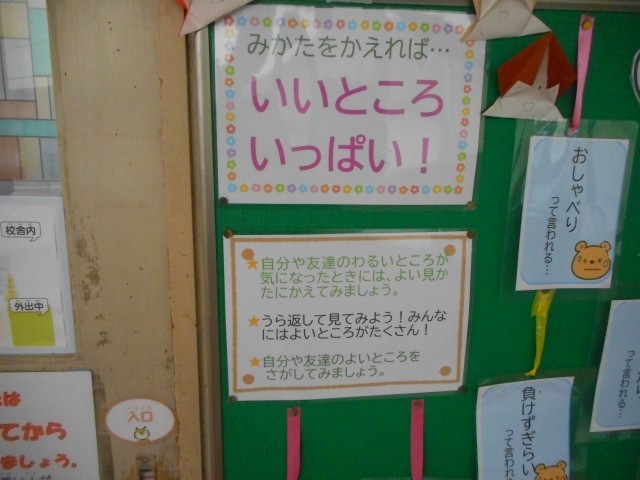 みかたをかえれば…
いいところ
いっぱい！
★自分や友達のわるいところが
気になったときには、よい見か
たにかえてみましょう。
★うら返して見てみよう！みんな
にはよいところがたくさん！
★自分や友達のよいところを
さがしてみましょう。
おしゃべり
って言われる…
負けずぎらい
って言われる
校舎内
外出中
入口
てから
ましょう。